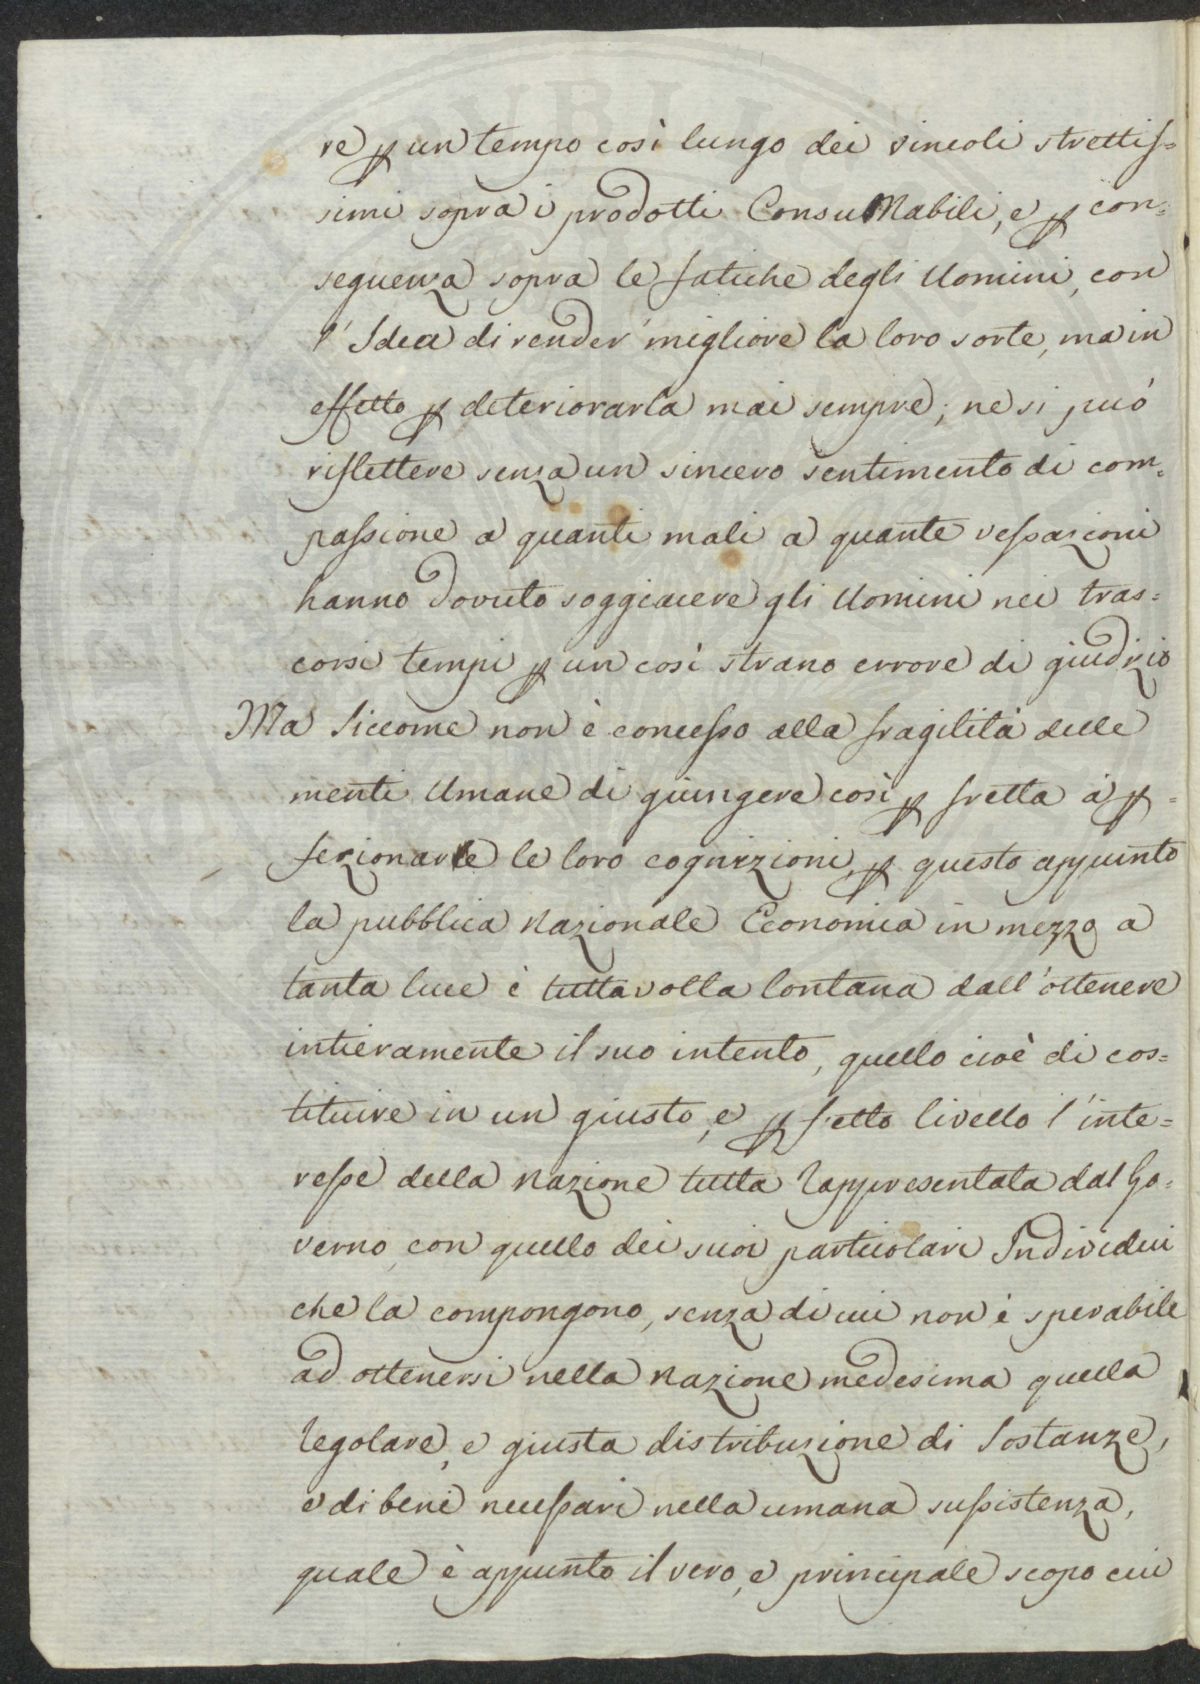 re ꝑ un tempo così lungo dei vincoli strettis=
simi sopra i prodotti ConsuMabili, e ꝑ con=
seguenza sopra le fatiche degli Uomini, con
l'Idea di render migliore la loro sorte, ma in
effetto ꝑ deteriorarla mai sempre; ne si può
riflettere senza un sincero sentimento di com=
passione a quanti mali a quante vessazioni
hanno dovuto soggiacere gli Uomini nei tras=
corsi tempi ꝑ un così strano errore di giudizio
Ma siccome non è concesso alla fragilità delle
menti Umane di giungere così ꝑ fretta à ꝑ=
fezionarle le loro cognizioni, ꝑ questo appunto
la pubblica Nazionale Economia in mezzo a
tanta luce è tuttavolta lontana dall'ottenere
intieramente il suo intento, quello cioè di cos=
tituire in un giusto, e ꝑfetto livello l'inte=
resse della Nazione tutta rappresentata dal Go=
verno, con quello dei suoi particolari Individui
che la compongono, senza di cui non è sperabile
ad ottenersi nella Nazione medesima quella
regolare, e giusta distribuzione di Sostanze,
e di beni necessari nella umana sussistenza,
quale è appunto il vero, e principale scopo cui